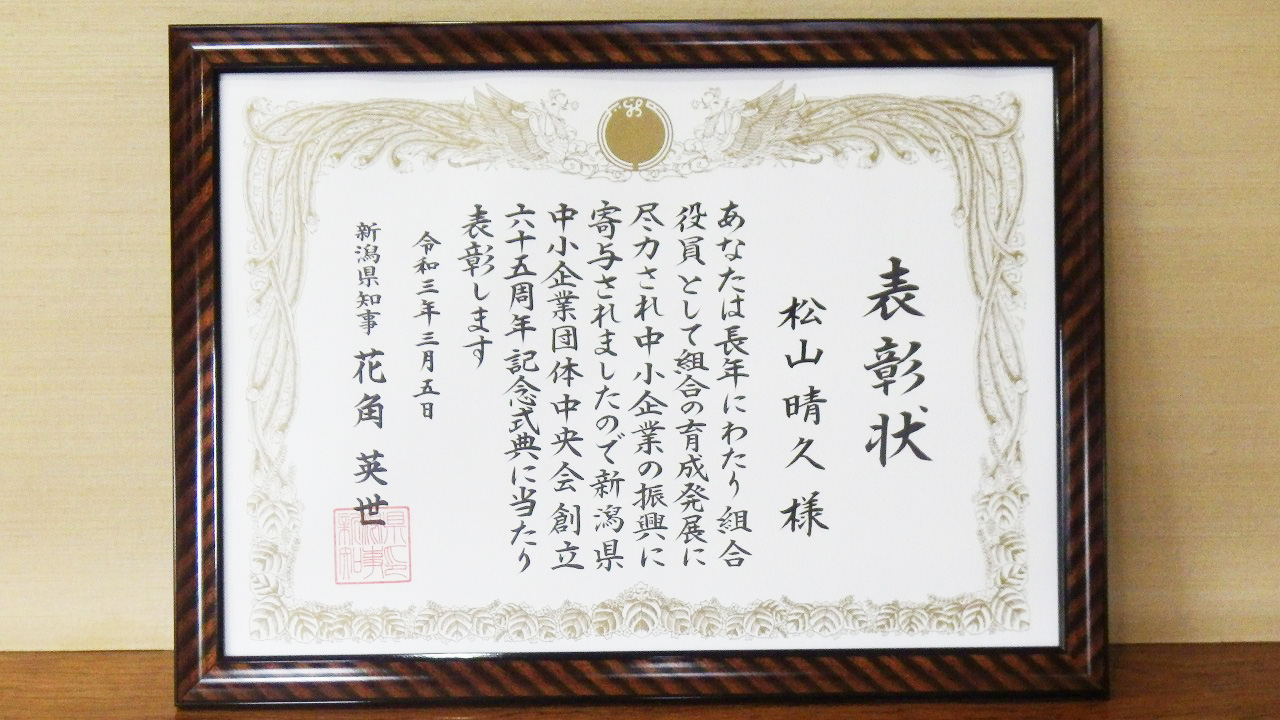 表彰状
松山晴久様
あなたは長年にわたり組合
役員として組合の育成発展に
尽力され中小企業の振興に
寄与されましたので新潟県
中小企業団体中央会創立
六十五周年記念式典に当たり
表彰します
令和三年三月五日
新潟県知事 花角 英世